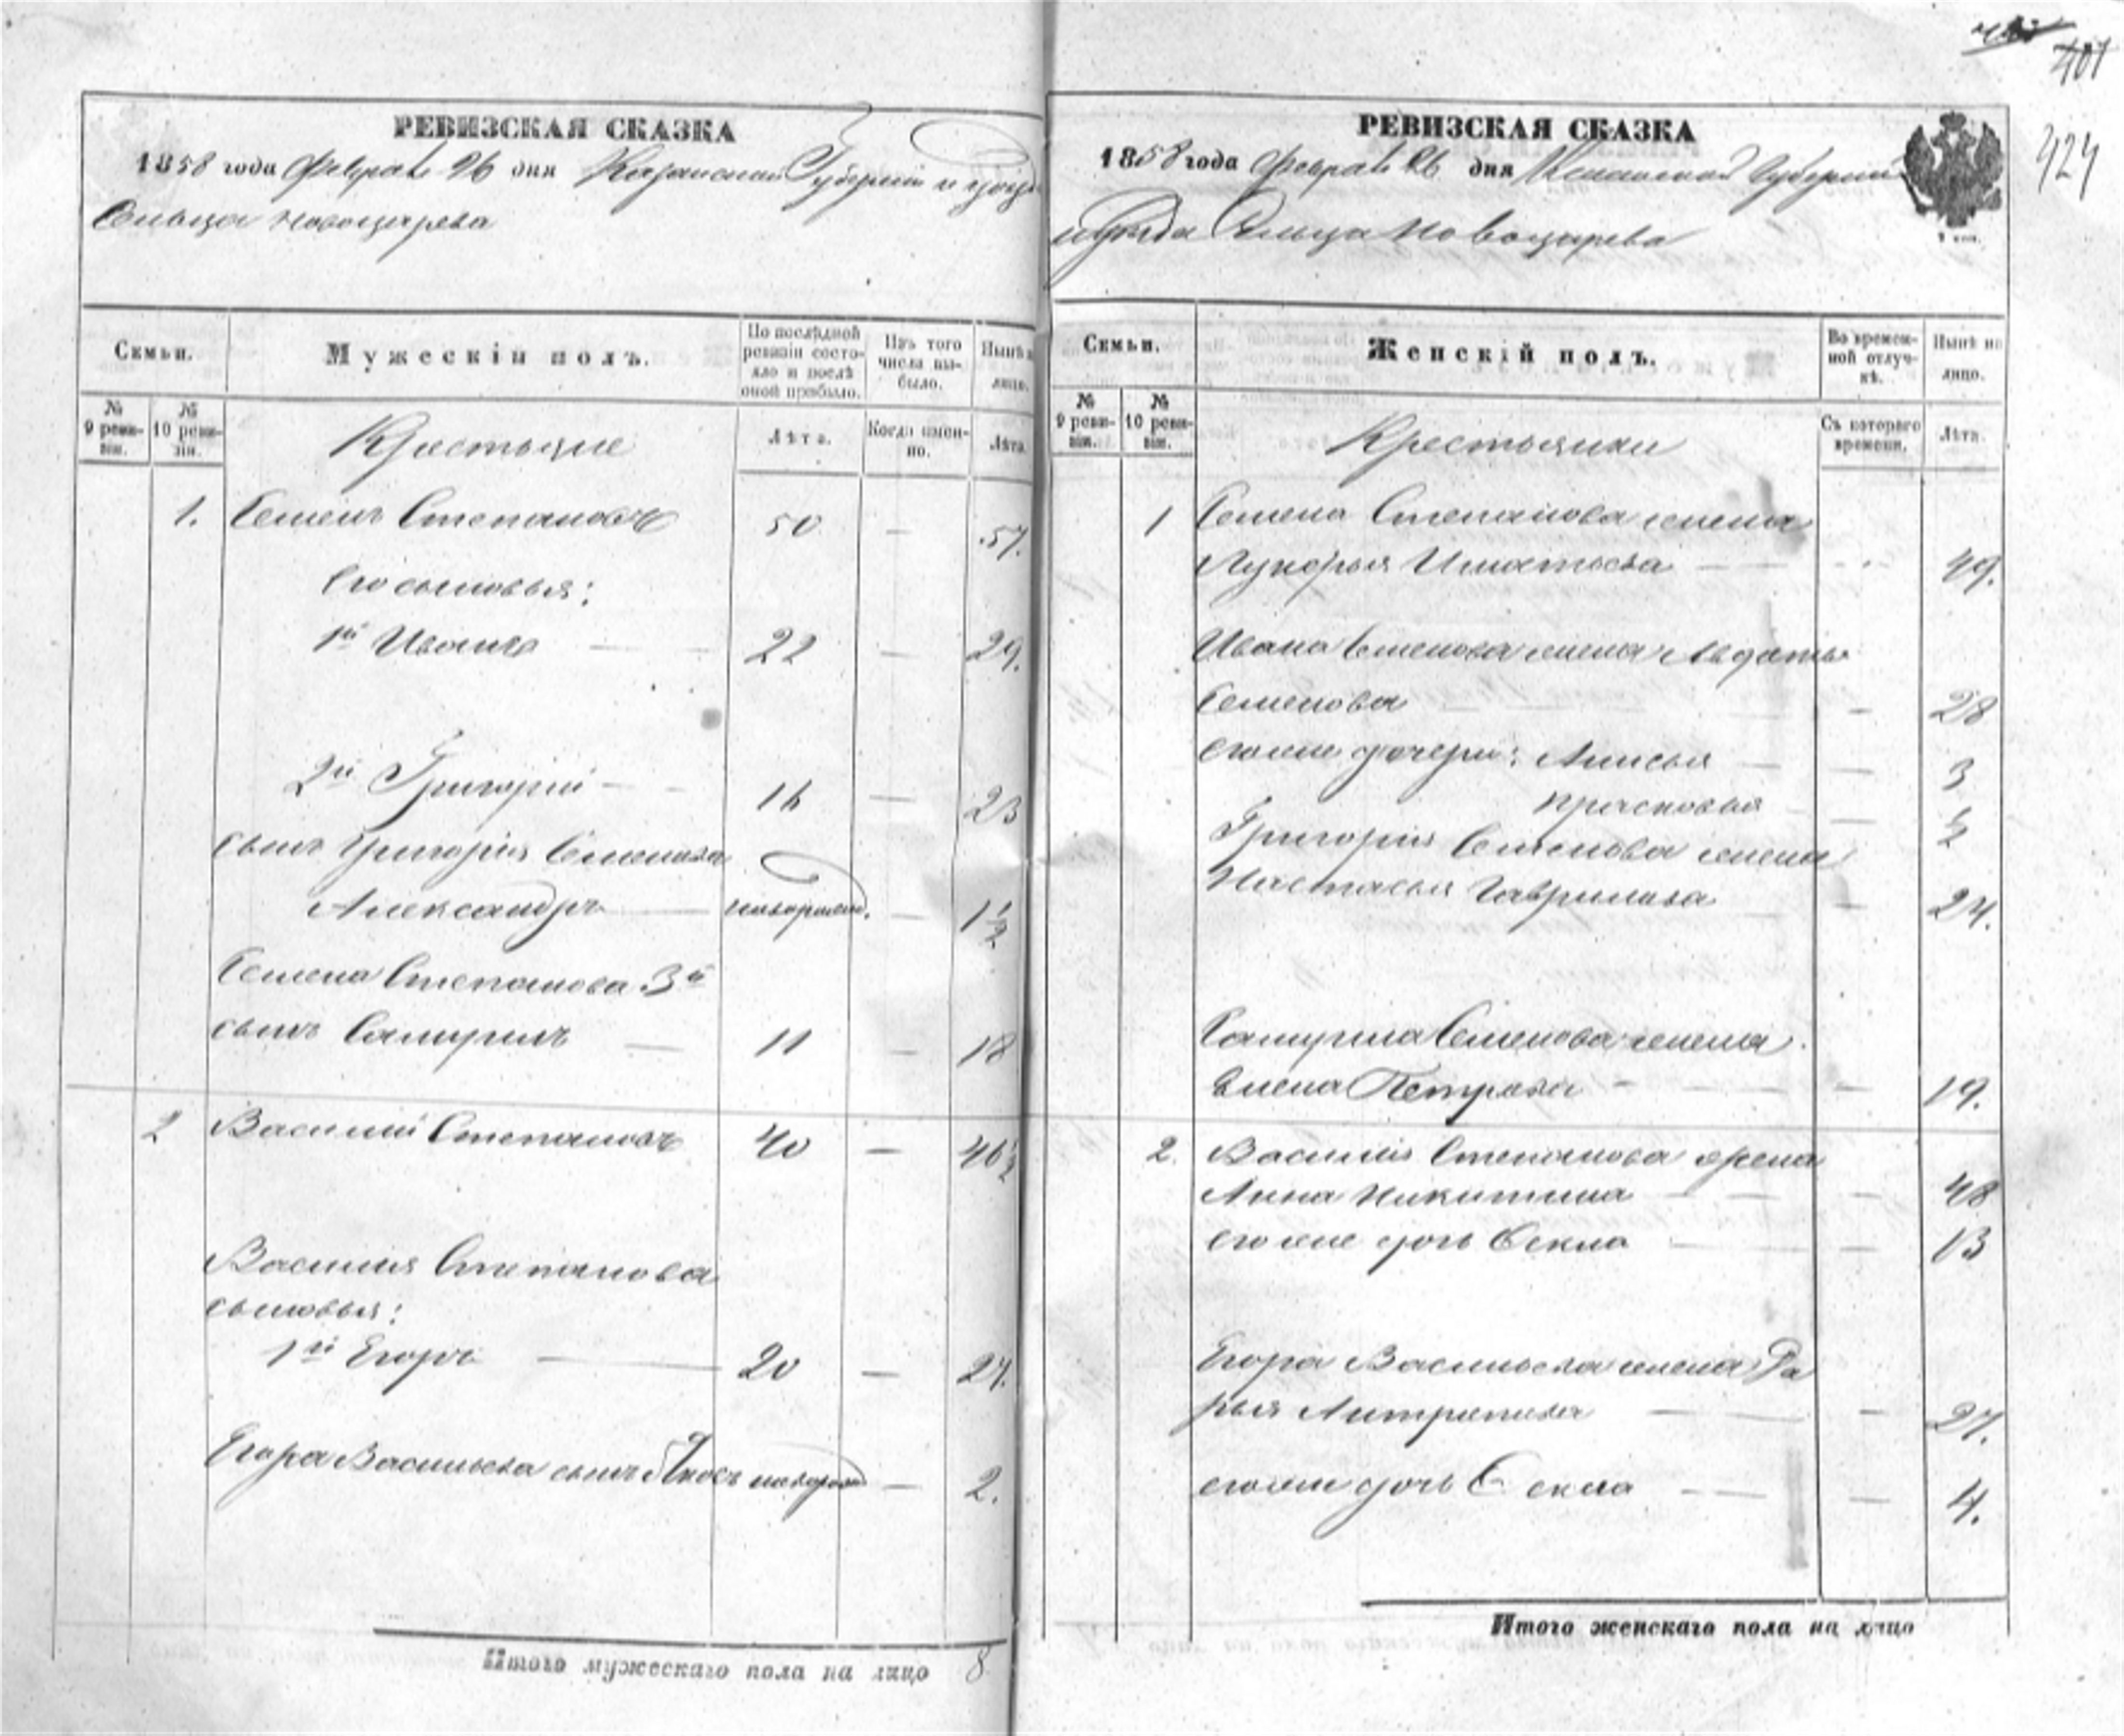 401
424
РЕВИЗСКАЯ СКАЗКА
1858 года Февраля 26 дня Казанской Губернии и уезда
Сельца Новоцарева
Семьи.
Мужескій полъ.
По послѣдней ревизіи состояло и послѣ оной прибыло.
Изъ того числа выбыло.
Нынѣ на лицо.
№ 9 ревизіи.
№ 10 ревизіи.
Лѣта.
Когда именно.
Лѣта.
Крестьяне
1. Семенъ Степановъ 50 — 57.
Его сыновья:
1й Иванъ — 22 — 29.
2й Григорій — 16 — 23
сынъ Григорія Семенова
Александръ — новорожд. — 1½
Семена Степанова 3й
сынъ Самуилъ — 11 — 18
2 Василій Степановъ 40 — 46½
Василія Степанова
сыновья:
1й Егоръ — 20 — 27.
Егора Васильева сынъ Яковъ новорожд — 2.
Итого мужескаго пола на лицо 8
РЕВИЗСКАЯ СКАЗКА
1858 года Февраля 26 дня Казанской Губерніи
и уѣзда Сельца Новоцарева
Семьи.
Женскій полъ.
Во временной отлучкѣ.
Нынѣ на лицо.
№ 9 ревизіи.
№ 10 ревизіи.
Съ котораго времени.
Лѣта.
Крестьянки
1 Семена Степанова жена
Лукерья Игнатьева — 49.
Ивана Семенова жена Авдотья
Семенова — 28
его же дочери: Анисья — 3
Прасковья — ½
Григорія Семенова жена
Настасья Гаврилова — 24.
Самуила Семенова жена
Елена Петрова — 19.
2. Василія Степанова жена
Анна Никитина — 48
его же дочь Фекла — 13
Егора Васильева жена Да
рья Антипова — 27.
его же дочь Фекла — 4.
Итого женскаго пола на лицо